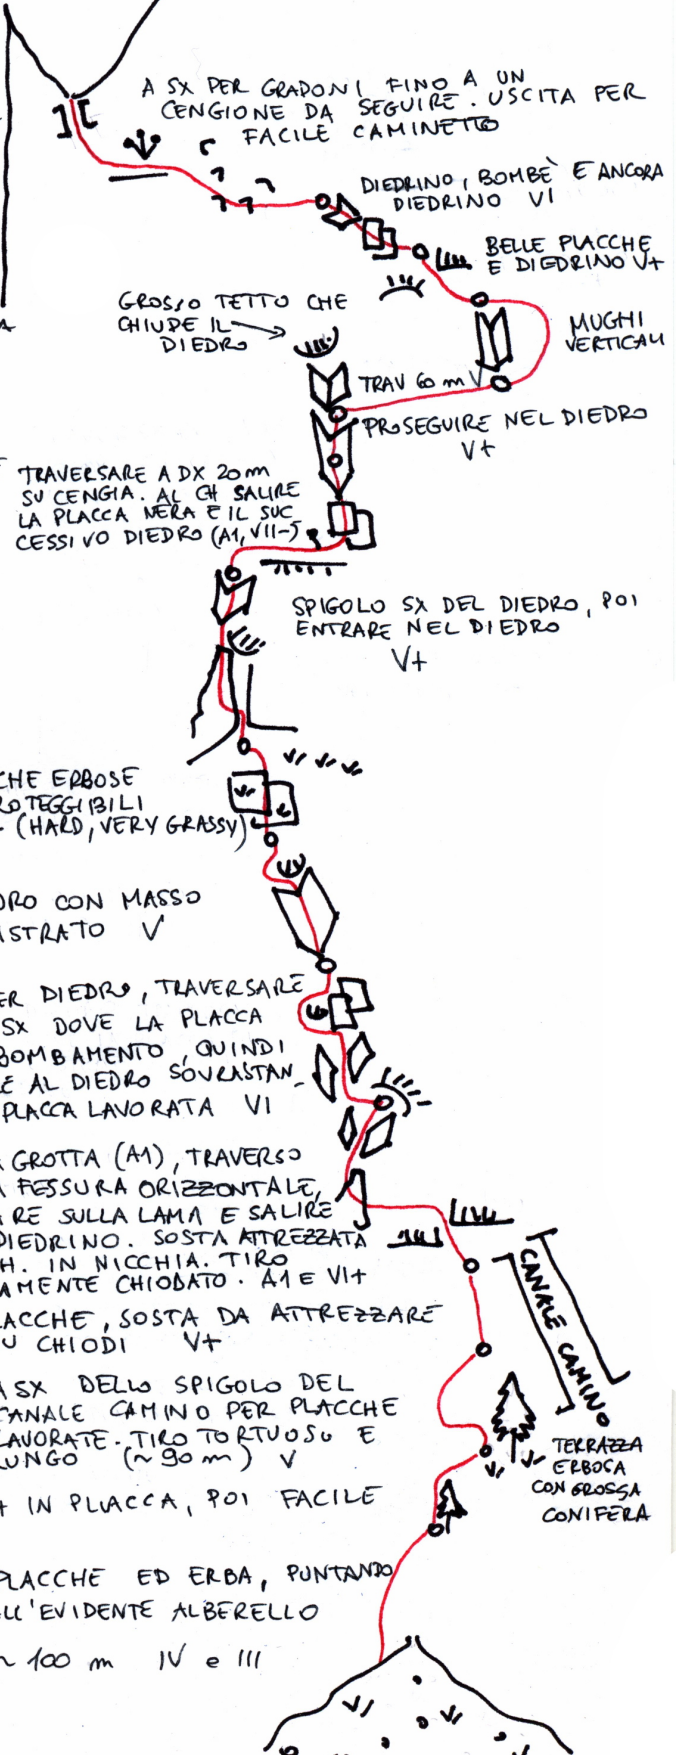 A SX PER GRADONI FINO A UN
CENGIONE DA SEGUIRE. USCITA PER
FACILE CAMINETTO
DIEDRINO, BOMBÈ E ANCORA
DIEDRINO VI
BELLE PLACCHE
E DIEDRINO V+
GROSSO TETTO CHE
CHIUDE IL
DIEDRO
MUGHI
VERTICALI
TRAV 60 m V
PROSEGUIRE NEL DIEDRO
V+
TRAVERSARE A DX 20m
SU CENGIA. AL CH SALIRE
LA PLACCA NERA E IL SUC
CESSIVO DIEDRO (A1, VII-)
SPIGOLO SX DEL DIEDRO, POI
ENTRARE NEL DIEDRO
V+
CHE ERBOSE
ROTEGGIBILI
(HARD, VERY GRASSY)
DRO CON MASSO
ISTRATO V
ER DIEDRO, TRAVERSARE
SX DOVE LA PLACCA
BOMBAMENTO, QUINDI
E AL DIEDRO SOVRASTAN_
PLACCA LAVORATA VI
A GROTTA (A1), TRAVERSO
A FESSURA ORIZZONTALE,
RE SULLA LAMA E SALIRE
DIEDRINO. SOSTA ATTREZZATA
H. IN NICCHIA. TIRO
AMENTE CHIODATO. A1 E VI+
ACCHE, SOSTA DA ATTREZZARE
U CHIODI V+
CANALE CAMINO
A SX DELLO SPIGOLO DEL
CANALE CAMINO PER PLACCHE
LAVORATE. TIRO TORTUOSO E
LUNGO (~90 m) V
TERRAZZA
ERBOSA
CON GROSSA
CONIFERA
+ IN PLACCA, POI FACILE
PLACCHE ED ERBA, PUNTANDO
LL'EVIDENTE ALBERELLO
~ 100 m IV e III